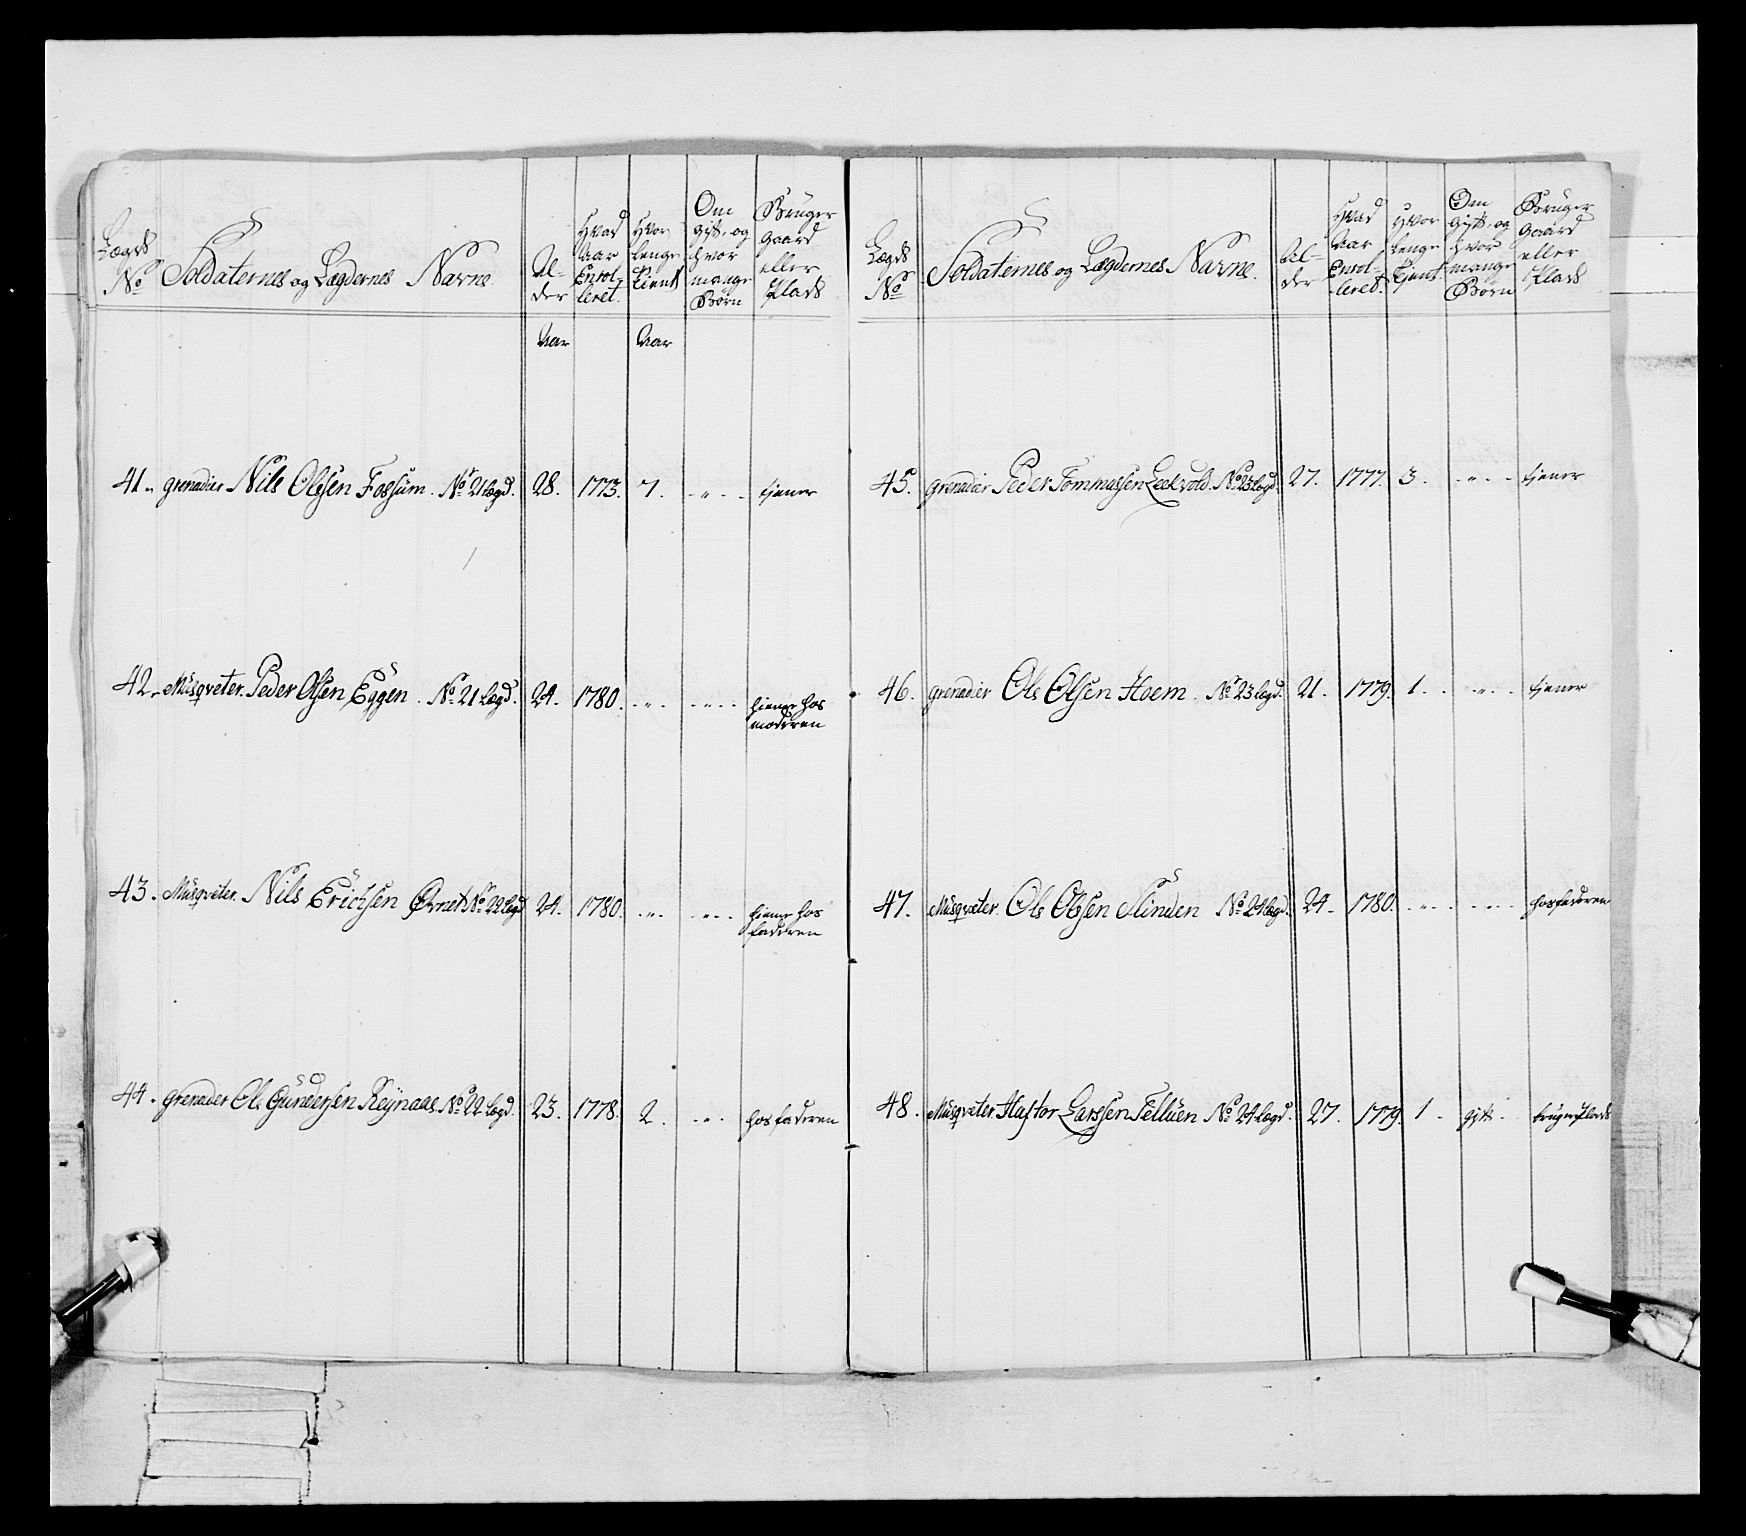 Lægds No
Soldaternes og Lægdernes Navne
Al-
der
Hvad
Aar
Enrol-
leret.
Hvor
lenge
tient
Om
gift, og
hvor
mange
Børn
Bruger
gaard
eller
Plads
Aar
Aar
41. grenadier Nils Olssen Fossum. No 21 lægd. 28. 1773. 7. - " - - tjener
42. Musqveter. Peder Olsen Eggen. No 21 Lægd. 24. 1780. - " - - " - - hieme hos
moderen
43. Musqveter. Nils Erichsen Ørnet No 22 lægd 24. 1780. - " - - " - - hiemme hos
faderen
44. Grenader Ole Gundersen Reÿnaas No 22 Lægd. 23. 1778. 2. - " - hos faderen
Lægds
No
Soldaternes og Lægdernes Navne.
Al-
der
Hvad
Aar
Enrol-
leret.
Hvor
lenge
tient
Om
gift, og
hvor
mange
Børn
Bruger
gaard
eller
Plads
45. grenadier Peder Tommessen No 23 lægd. 27. 1777. 3. - " - - tjener
46. grenadier Ole Olsen Hoem. No 23 lægd. 21. 1779. 1. - " - tjener
47. Musqveter. Ole Olssen Slinden No 24 lægd. 24. 1780. - " - - " - - hos faderen
48. Musqveter. Haftor Larssen Telluen No 24 Lægd. 27. 1779. 1. gift. bruger Plads